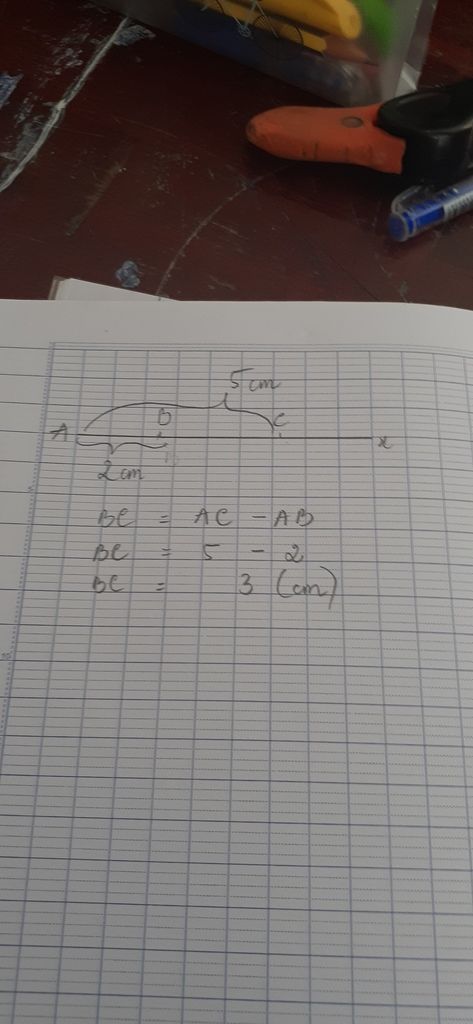 5 cm
A B C x
2 cm
BC = AC - AB
BC = 5 - 2
BC = 3 (cm)